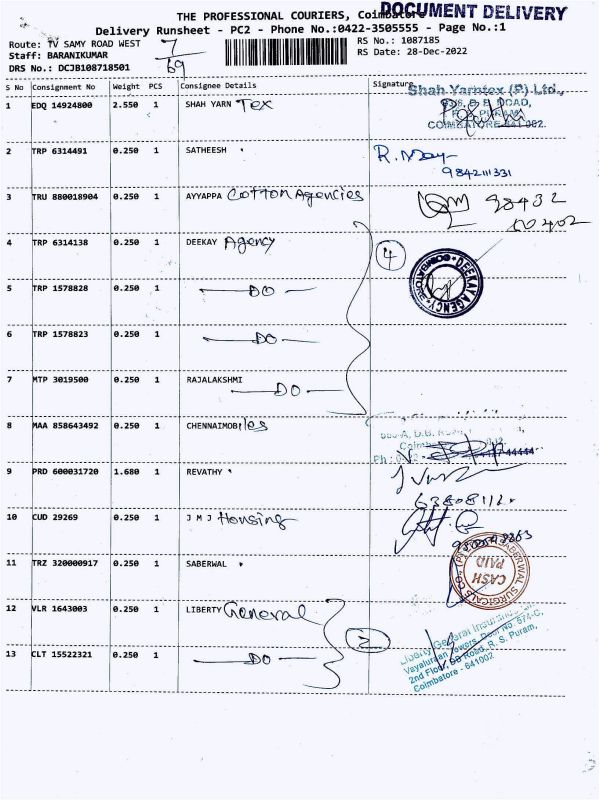 DOCUMENT DELIVERY
THE PROFESSIONAL COURIERS, Coimbatore
Delivery Runsheet - PC2 - Phone No.:0422-3505555 - Page No.:1
Route: TV SAMY ROAD WEST
7
RS No.: 1087185
Staff: BARANIKUMAR
69
RS Date: 28-Dec-2022
DRS No.: DCJB108718501
S No Consignment No Weight PCS Consignee Details Signature
Shah Yarntex (P) Ltd.,
1 EDQ 14924800 2.550 1 SHAH YARN Tex
COIMBATORE 641 002.
2 TRP 6314491 0.250 1 SATHEESH
3 TRU 880018904 0.250 1 AYYAPPA Cotton Agencies
98432
4 TRP 6314138 0.250 1 DEEKAY Agency
4
DEEKAY AGENCY COIMBATORE
5 TRP 1578828 0.250 1 DO
6 TRP 1578823 0.250 1 DO
7 MTP 3019500 0.250 1 RAJALAKSHMI
DO
8 MAA 858643492 0.250 1 CHENNAIMOBiles
9 PRD 600031720 1.680 1 REVATHY
10 CUD 29269 0.250 1 J M J Housing
11 TRZ 320000917 0.250 1 SABERWAL
SABERWAL SURGICALS CO., (P)
CASH
PAID
12 VLR 1643003 0.250 1 LIBERTY General
2
Liberty General Insurance
Vayalurann Towers, Door No. 574-C,
2nd Floor, DB Road, R. S. Puram,
Coimbatore - 641002
13 CLT 15522321 0.250 1 DO